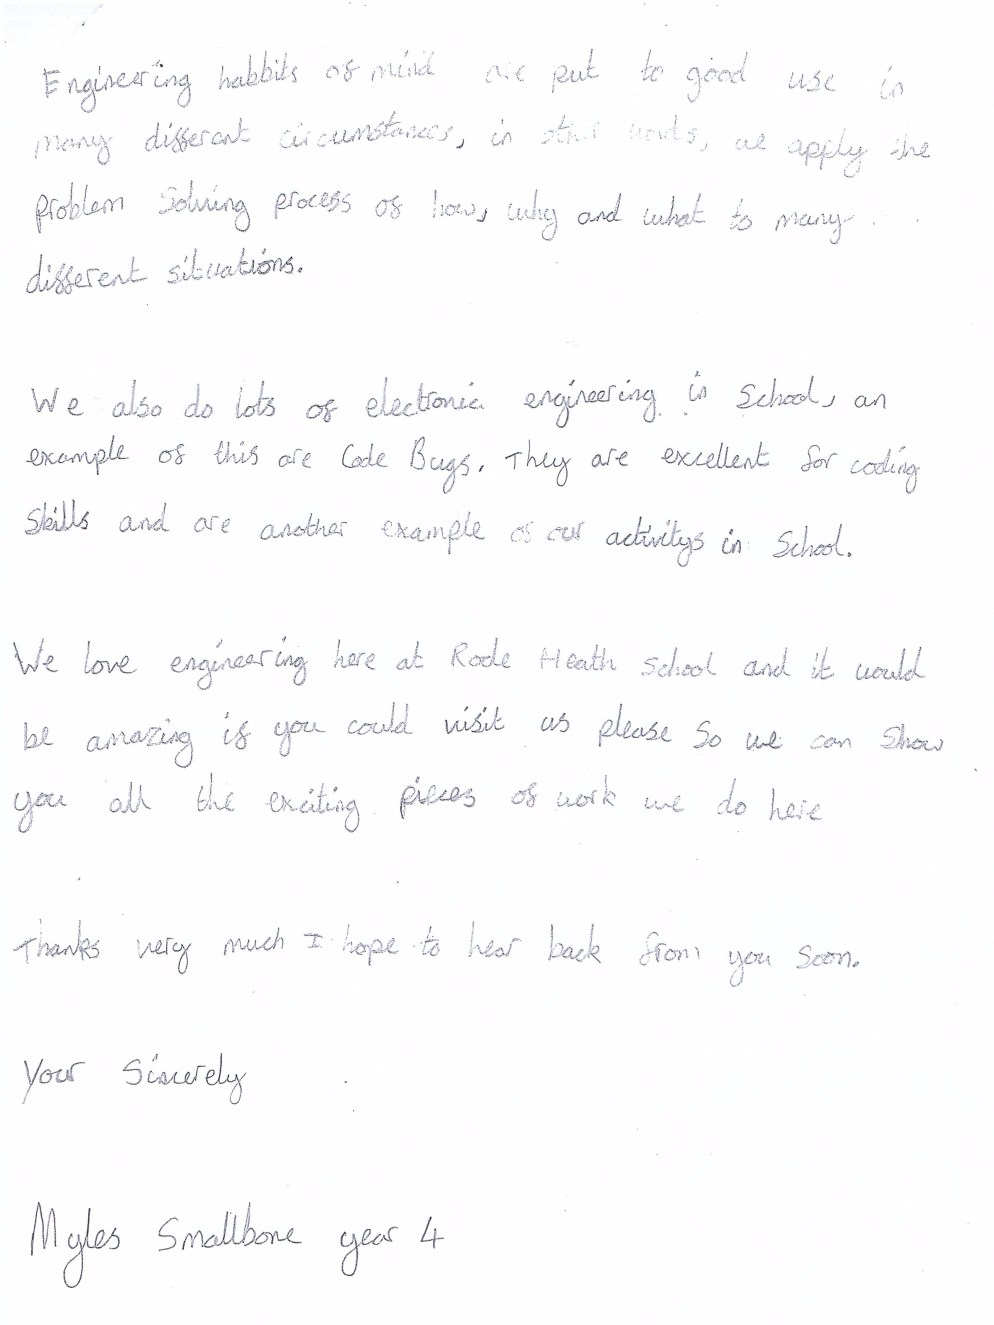 Engineering habbits of mind are put to good use in
many differant circumstances, in other words, we apply the
problem solving process of how, why and what to many
different situations.
We also do lots of electronic engineering in School, an
example of this are Code Bugs. They are excellent for coding
Skills and are another example of our activitys in School.
We love engineering here at Rode Heath School and it would
be amazing if you could visit us please So we can Show
you all the exciting pieces of work we do here
Thanks very much I hope to hear back from you Soon.
Your Sincerely
Myles Smallbone year 4